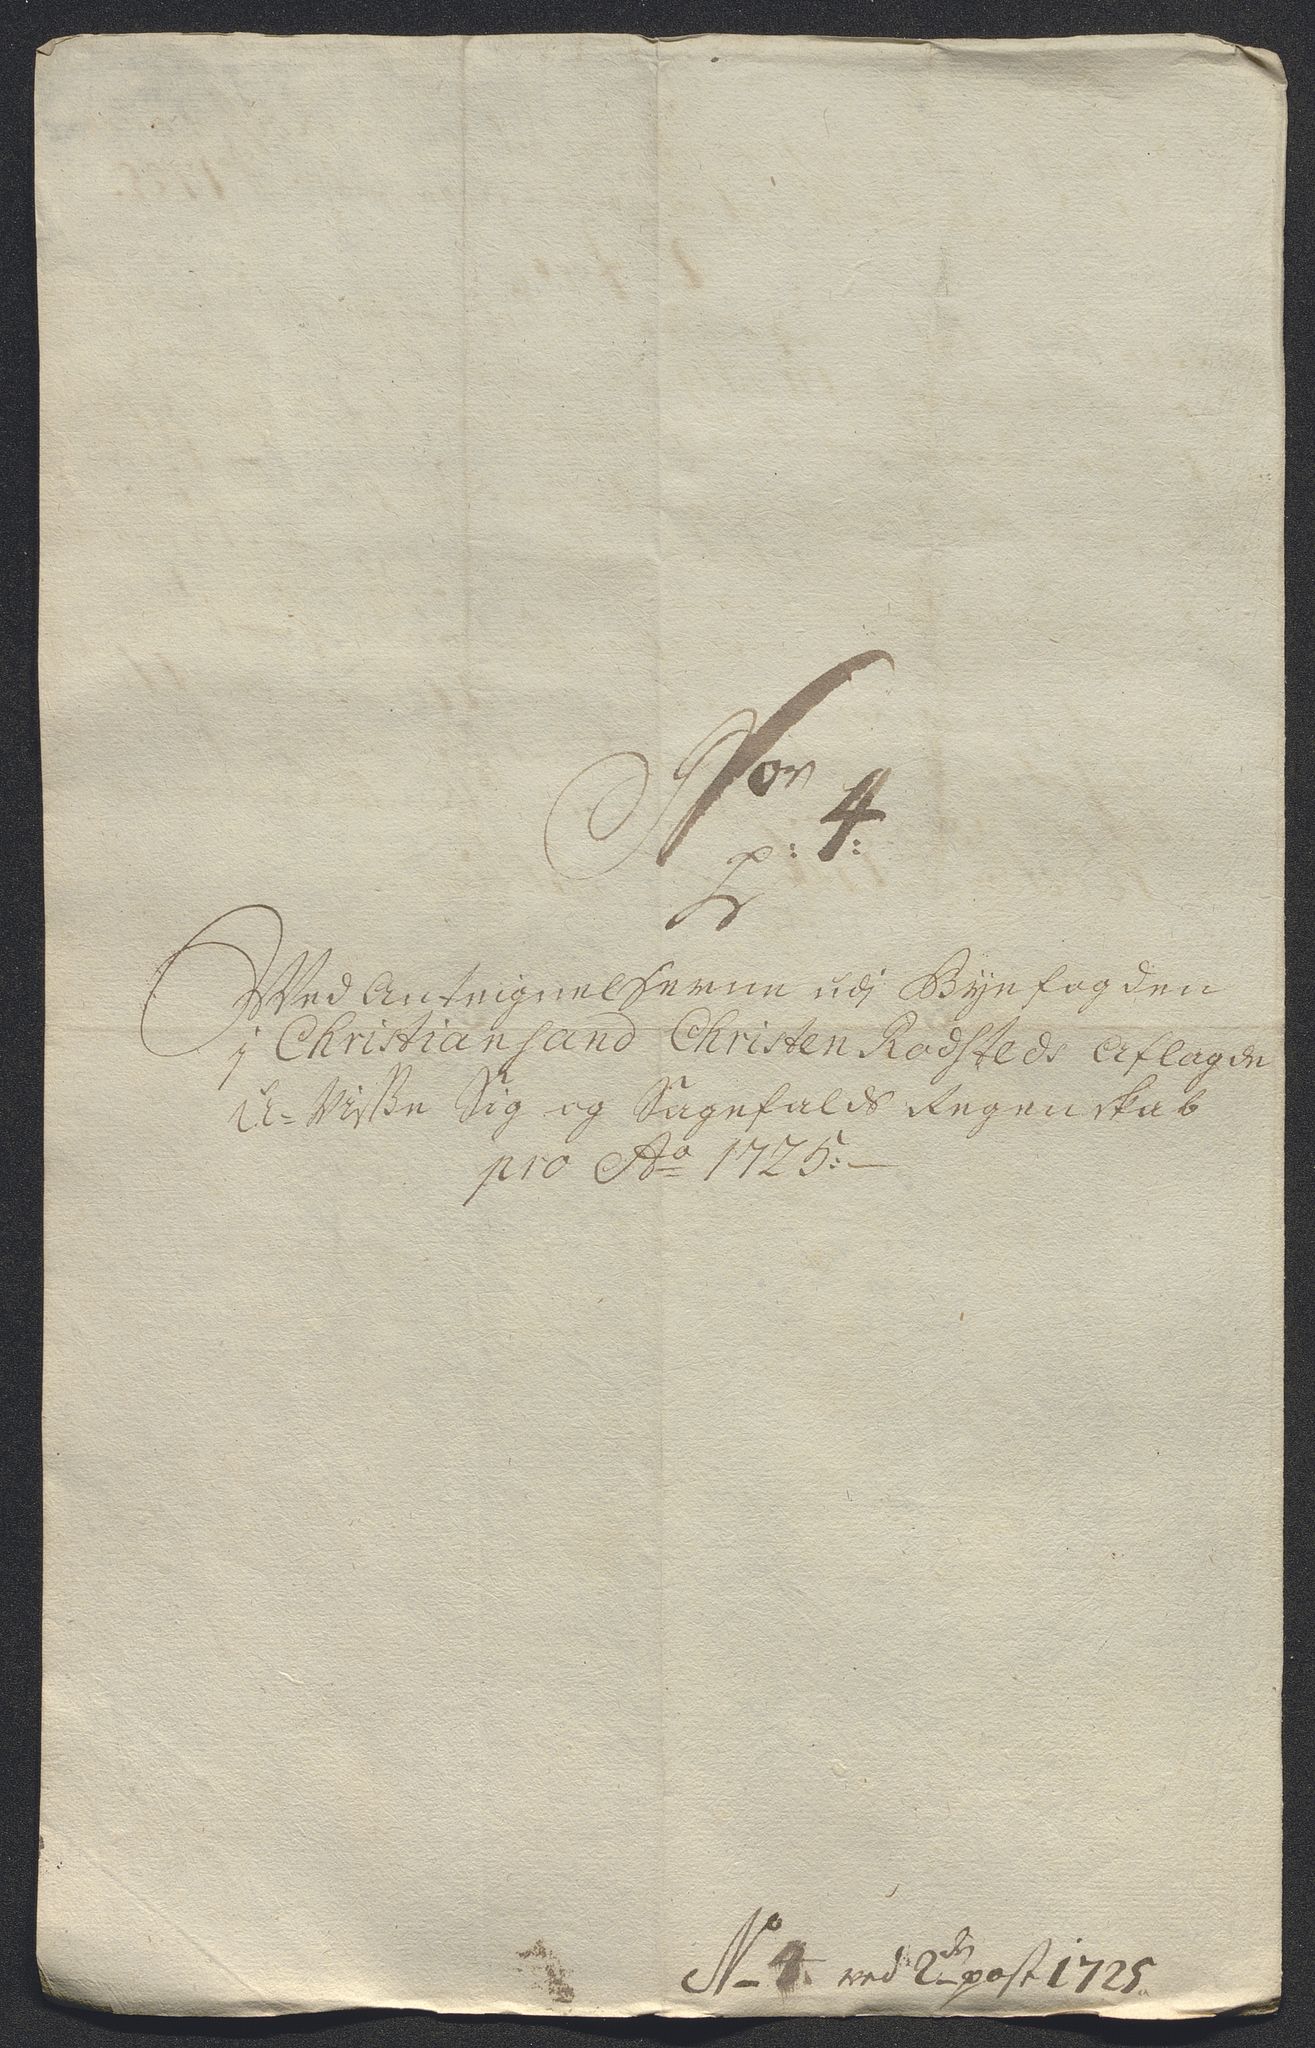 Nor 4:
Ved Anteignelserne udj Byefogden
i Christiansand Christen Rodsteds Aflagde
U-Visse Sig og Sagefalds Regenskab
pro Ao 1725:
No 4. ved 2den post 1725.